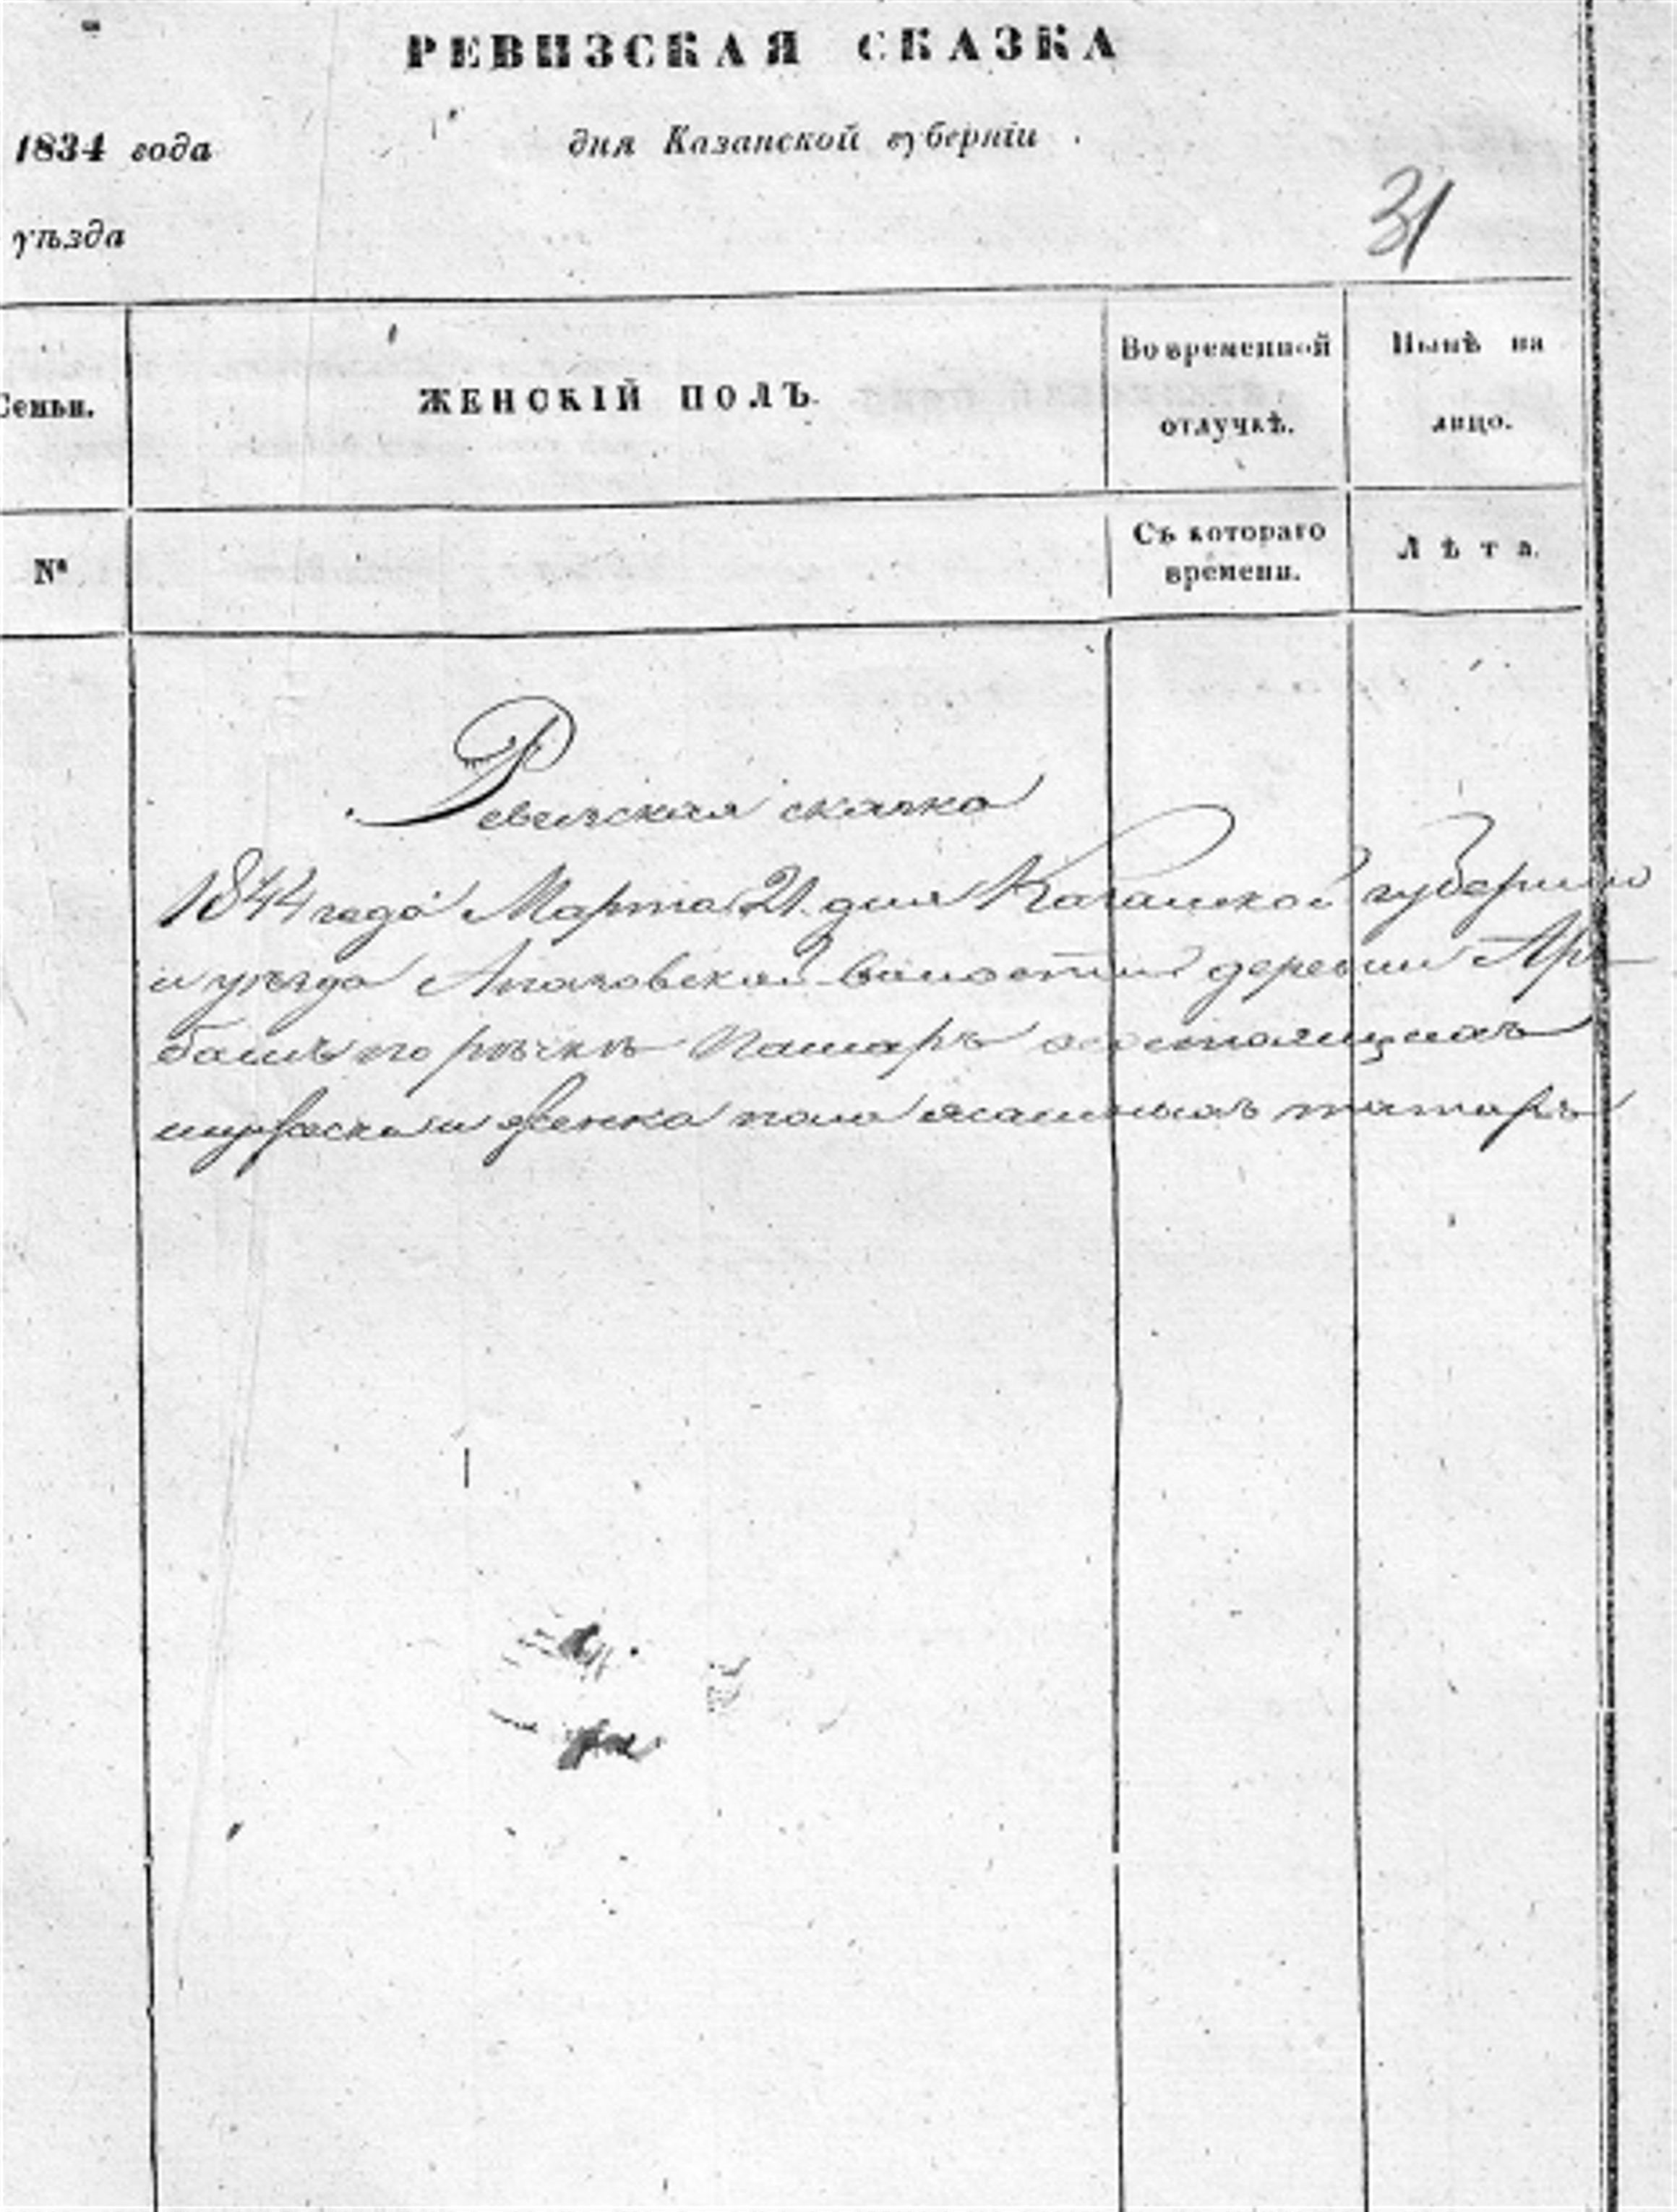 РЕВИЗСКАЯ СКАЗКА
1834 года
дня Казанской губерніи
уѣзда
31
Семьи.
ЖЕНСКІЙ ПОЛЪ.
Во временной отлучкѣ.
Нынѣ на лицо.
№
Съ котораго времени.
Лѣта.
Ревизская сказка
1844 года Марта 21 дня Казанской губернии
и уезда волости деревни Ар-
башъ по речкѣ состоящихъ
мужеска и женска пола ясашныхъ татаръ